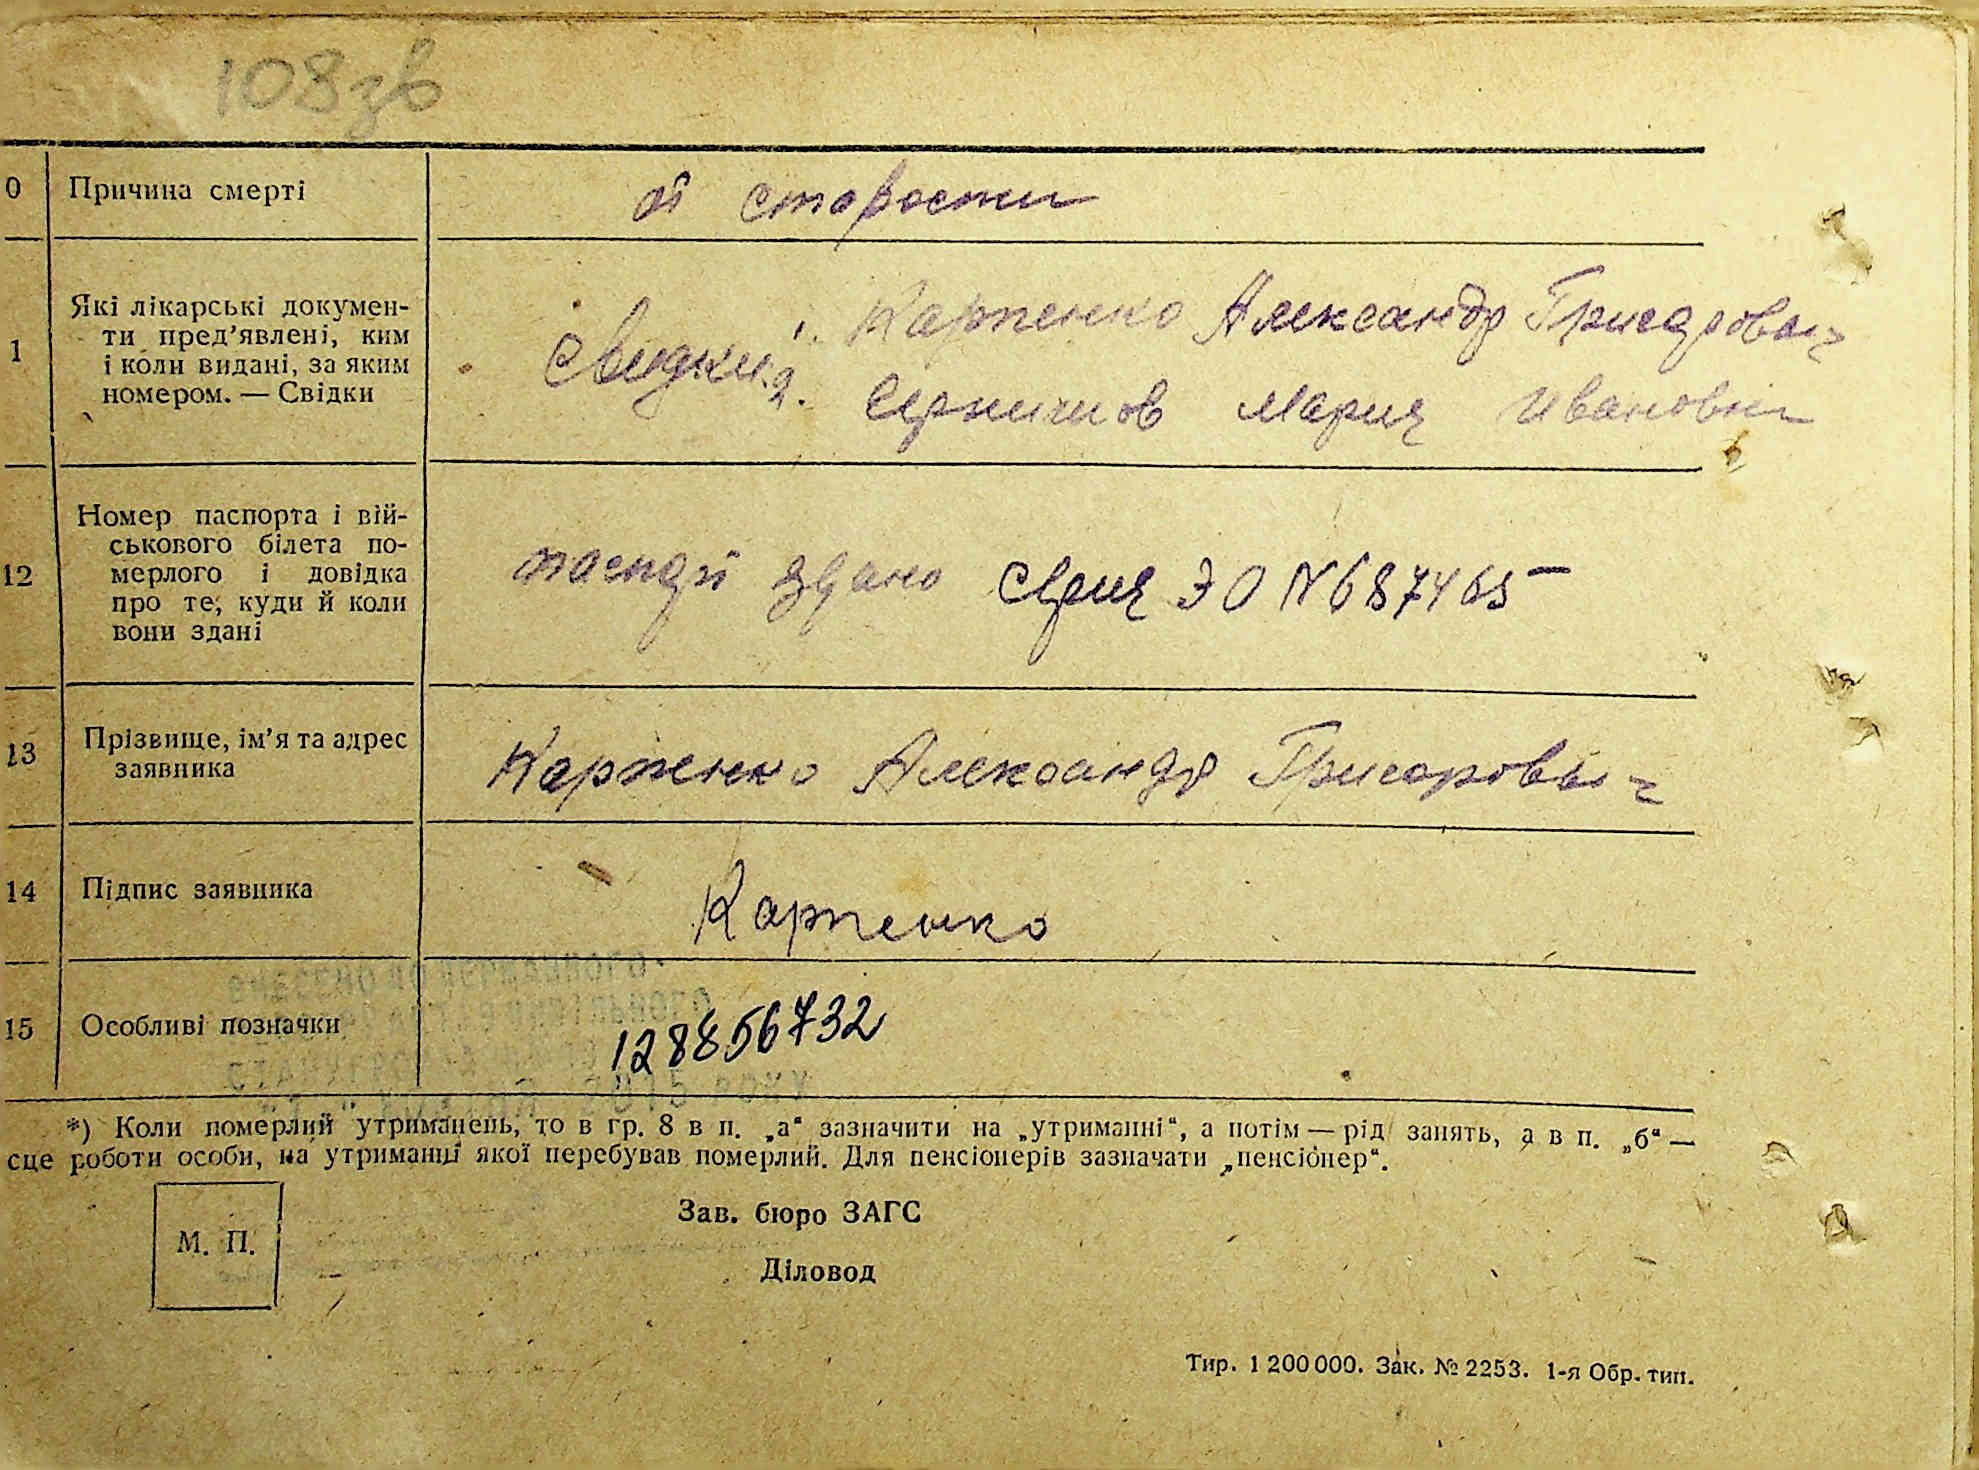 108зв
0 Причина смерті от старости
1 Які лікарські докумен-
ти пред’явлені, ким
і коли видані, за яким
номером. — Свідки
Свидки 1. Карпенко Александр Григоровыч
2. Мария Ивановна
12 Номер паспорта і вій-
ськового білета по-
мерлого і довідка
про те, куди й коли
вони здані
паспорт здано серия ЭО №687465
13 Прізвище, ім’я та адрес
заявника
Карпенко Александр Григоровыч
14 Підпис заявника Карпенко
15 Особливі позначки 128856732
*) Коли померлий утриманець, то в гр. 8 в п. „а“ зазначити на „утриманні“, а потім — рід занять, а в п. „б“ —
сце роботи особи, на утриманні якої перебував померлий. Для пенсіонерів зазначати „пенсіонер“.
М. П.
Зав. бюро ЗАГС
Діловод
Тир. 1 200 000. Зак. № 2253. 1-я Обр. тип.